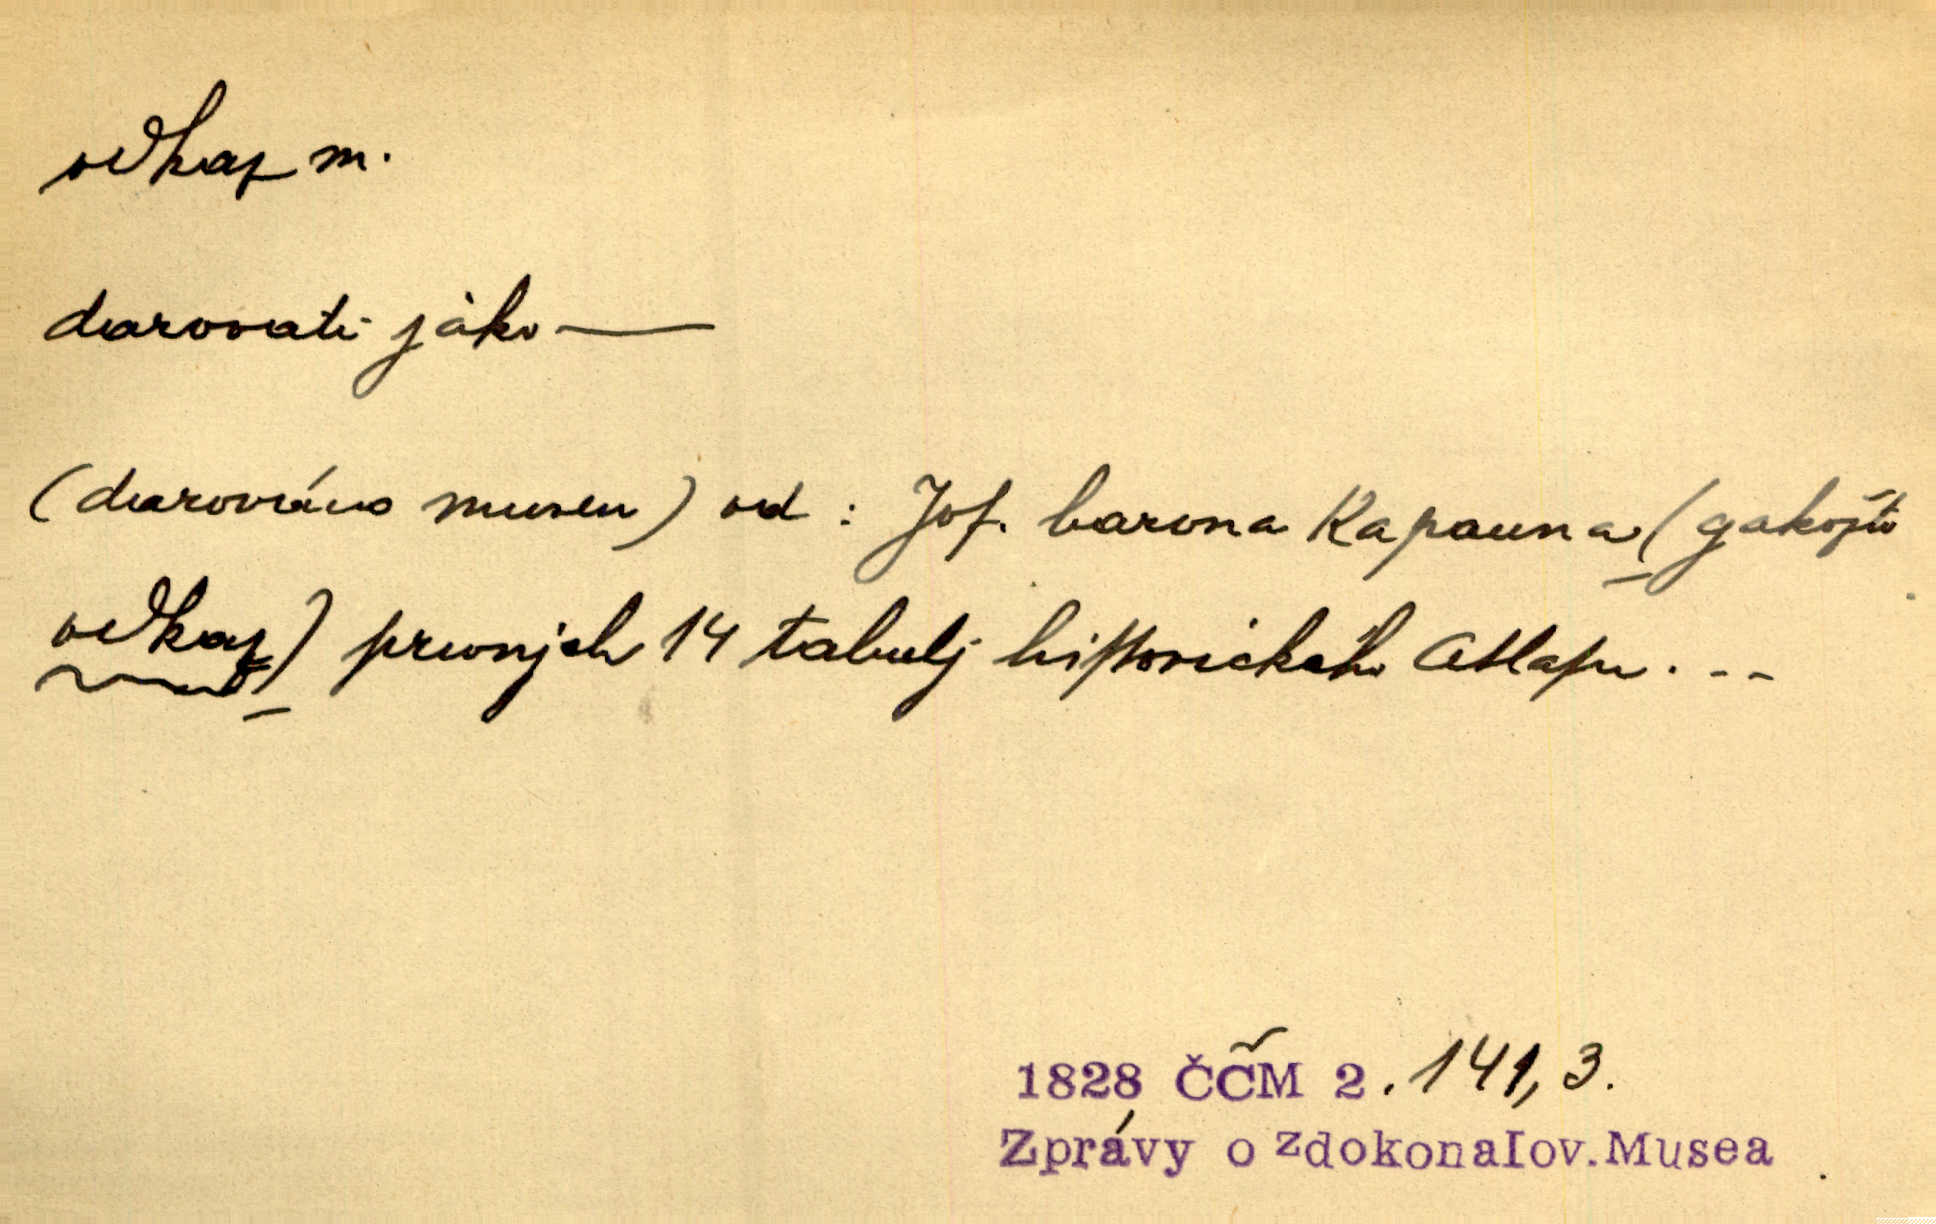 odkaz m.
darovati jako —
(darováno museu) od: Jos. barona Kapauna (gakožto
odkaz) prwnjch 14 tabulj historického Atlasu. ---
1828 ČČM 2. 141, 3.
Zprávy o zdokonalov. Musea